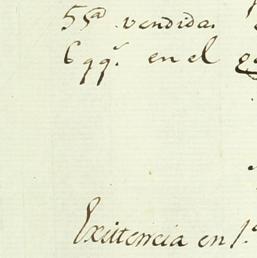 55ª vendida.
6 qqˢ. en el
Existencia en 1.º